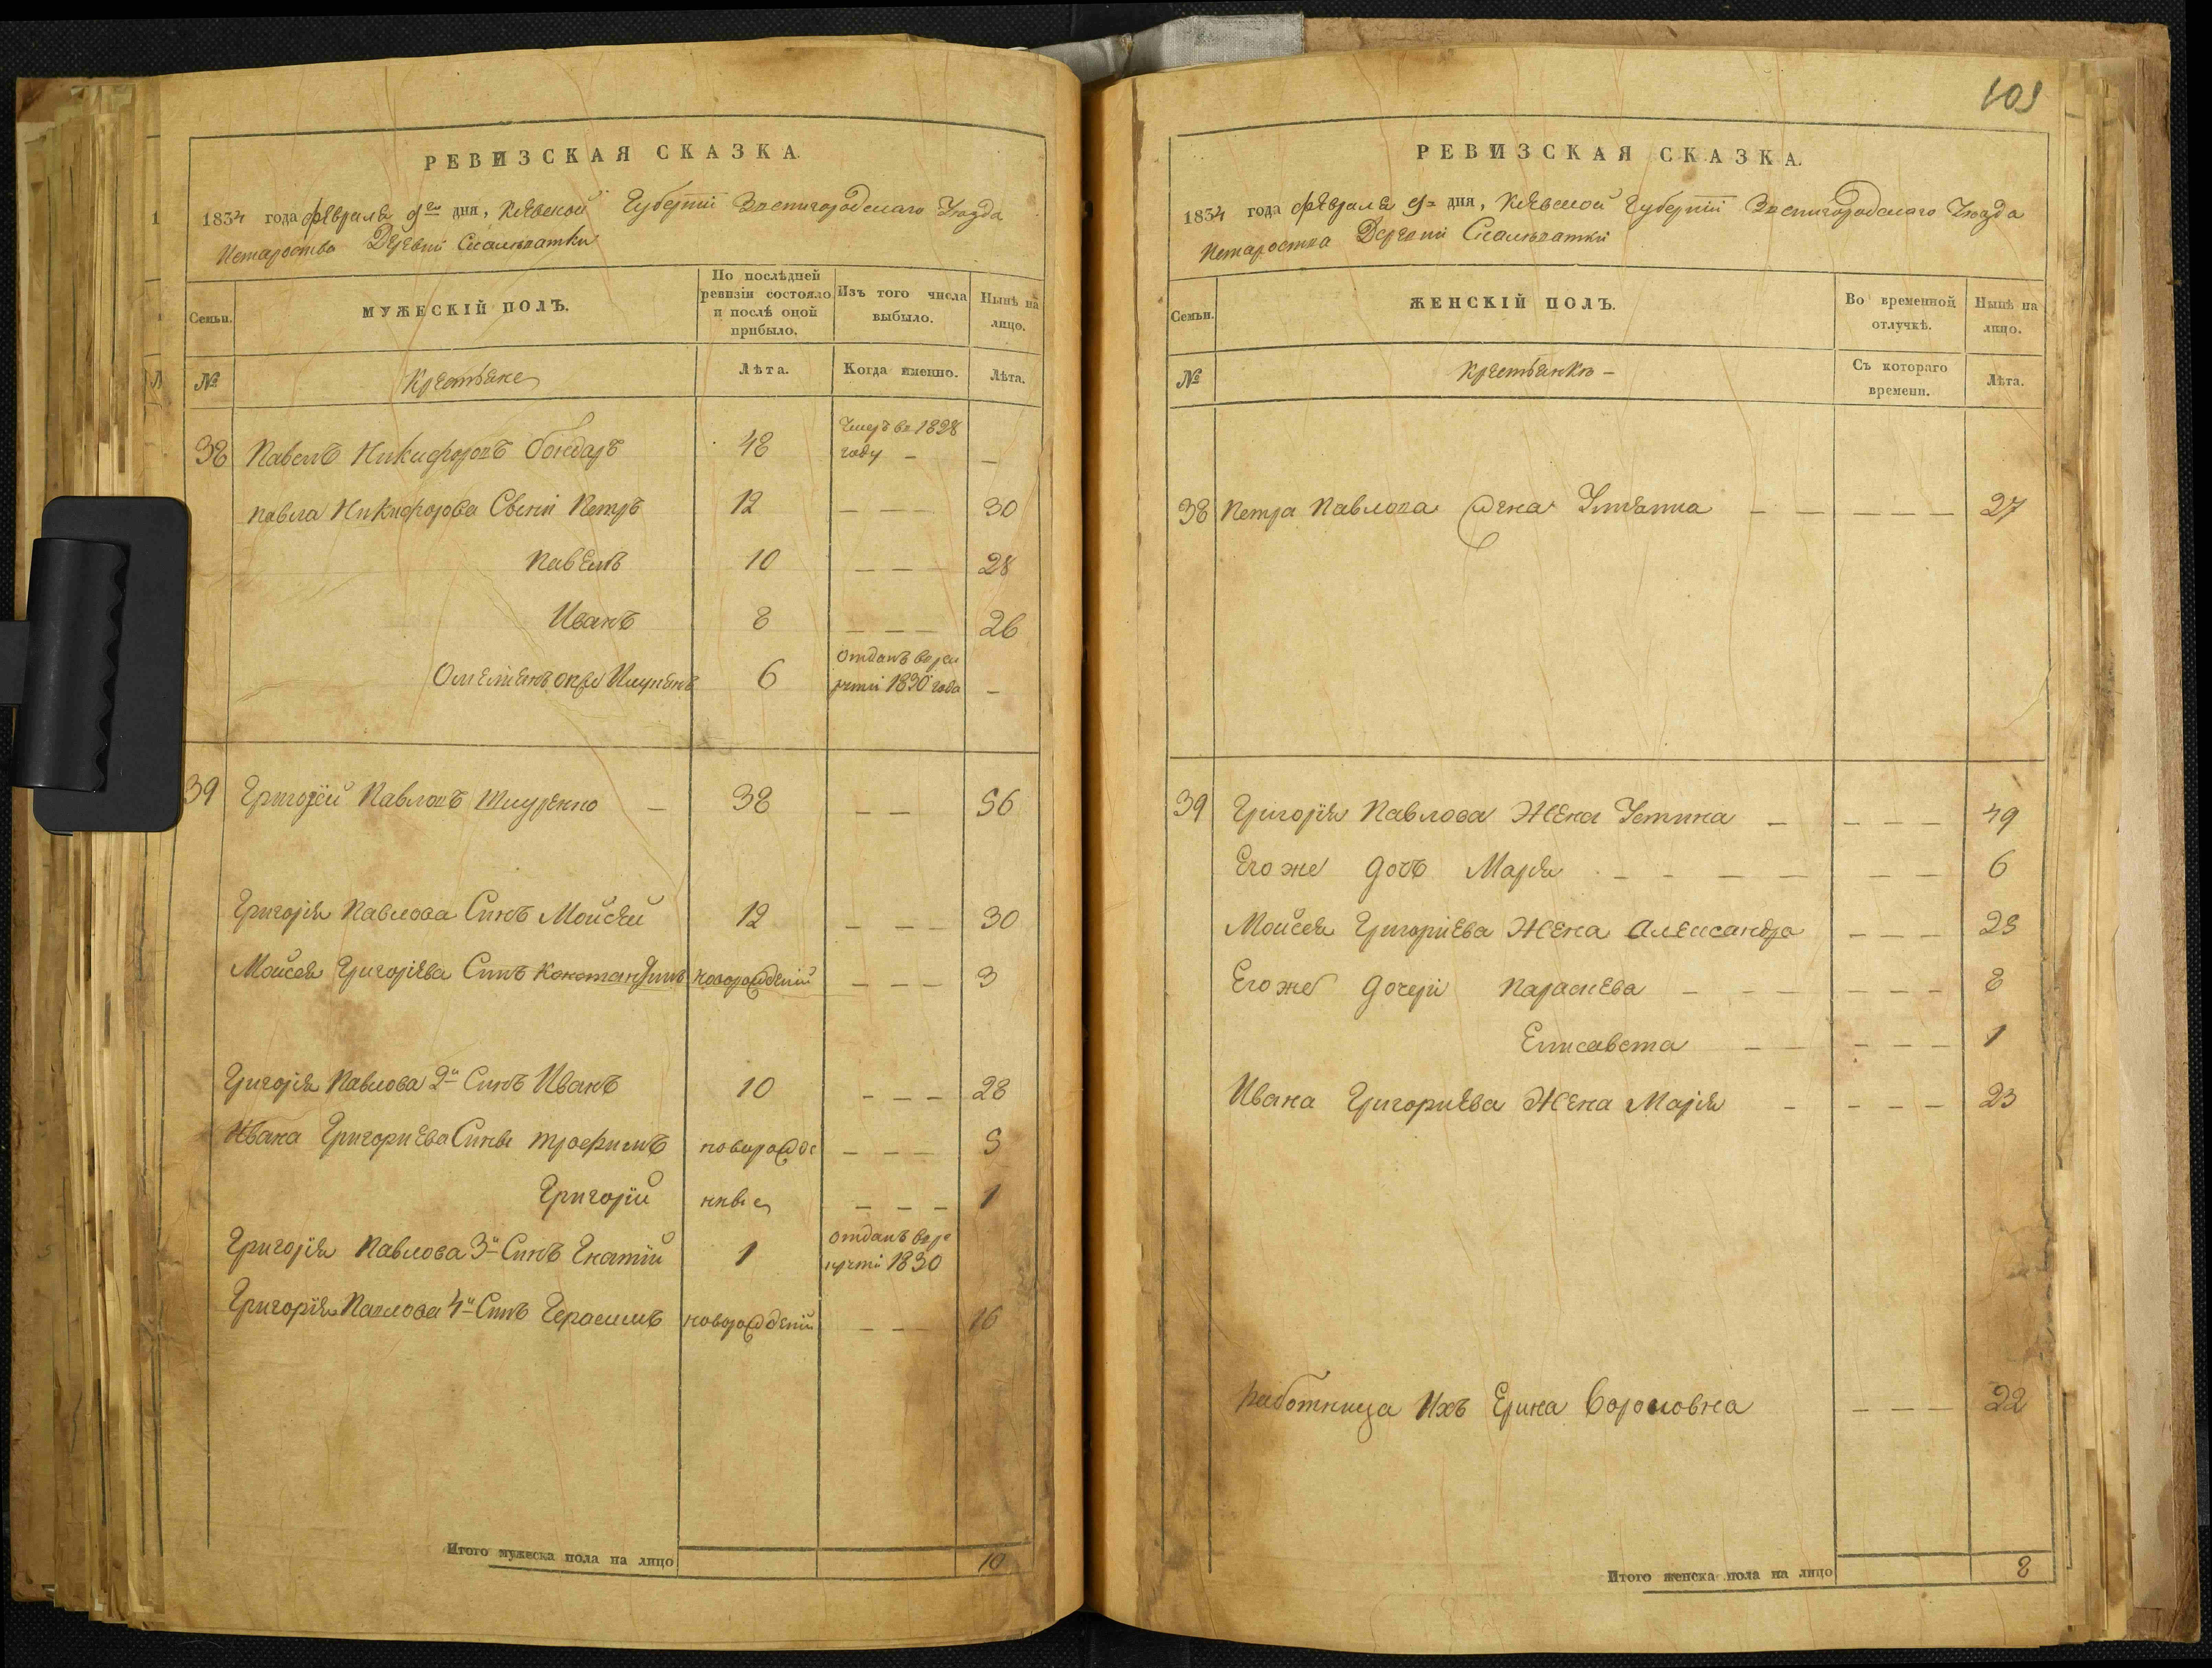 РЕВИЗСКАЯ СКАЗКА.
1834 года февраля 9го дня, Кіевской Губерніи Звенигородскаго Уезда
Деревни
Семьи.
МУЖЕСКІЙ ПОЛЪ.
По послѣдней ревизіи состояло и послѣ оной прибыло.
Изъ того числа выбыло.
Нынѣ на лицо.
№
Крестьяне
Лѣта.
Когда именно.
Лѣта.
38 Павелъ Никифоровъ Бондаръ 48 Умеръ въ 1828 году – –
Павла Никифорова Сыни Петръ 12 – – – 30
Павелъ 10 – – – 28
Иванъ 8 – – – 26
Омелянъ 6 Отданъ в рекруты 1830 года –
39 Григорій Павловъ – 38 – – 56
Григорія Павлова Синъ Мойсей 12 – – – 30
Мойсея Григоріева Синъ Константинъ новорожденій – – – 3
Григорія Павлова 2й Синъ Иванъ 10 – – – 28
Ивана Григориева Сины Трофимъ новорожде – – – 5
Григорій нные – – – 1
Григорія Павлова 3й Синъ Гнатій 1 отданъ в рекруты 1830
Григорія Павлова 4й Синъ Герасимъ новорожденій – – – 16
Итого мужеска пола на лицо 10
103
РЕВИЗСКАЯ СКАЗКА.
1834 года февраля 9го дня, Кіевской Губерніи Звенигородскаго Уезда
Деревни
Семьи.
ЖЕНСКІЙ ПОЛЪ.
Во временной отлучкѣ.
Нынѣ на лицо.
№
Крестьянки –
Съ котораго времени.
Лѣта.
38 Петра Павлова Жена – – – – – 27
39 Григорія Павлова Жена Устина – – – – 49
Его же дочь Марія – – – – – – – 6
Мойсея Григориева Жена Александра – – – 25
Его же дочери Параскева – – – – – – 8
Елисавета – – – – – 1
Ивана Григориева Жена Марія – – – – 23
Работница Ихъ Ерина – – – 22
Итого женска пола на лицо 8